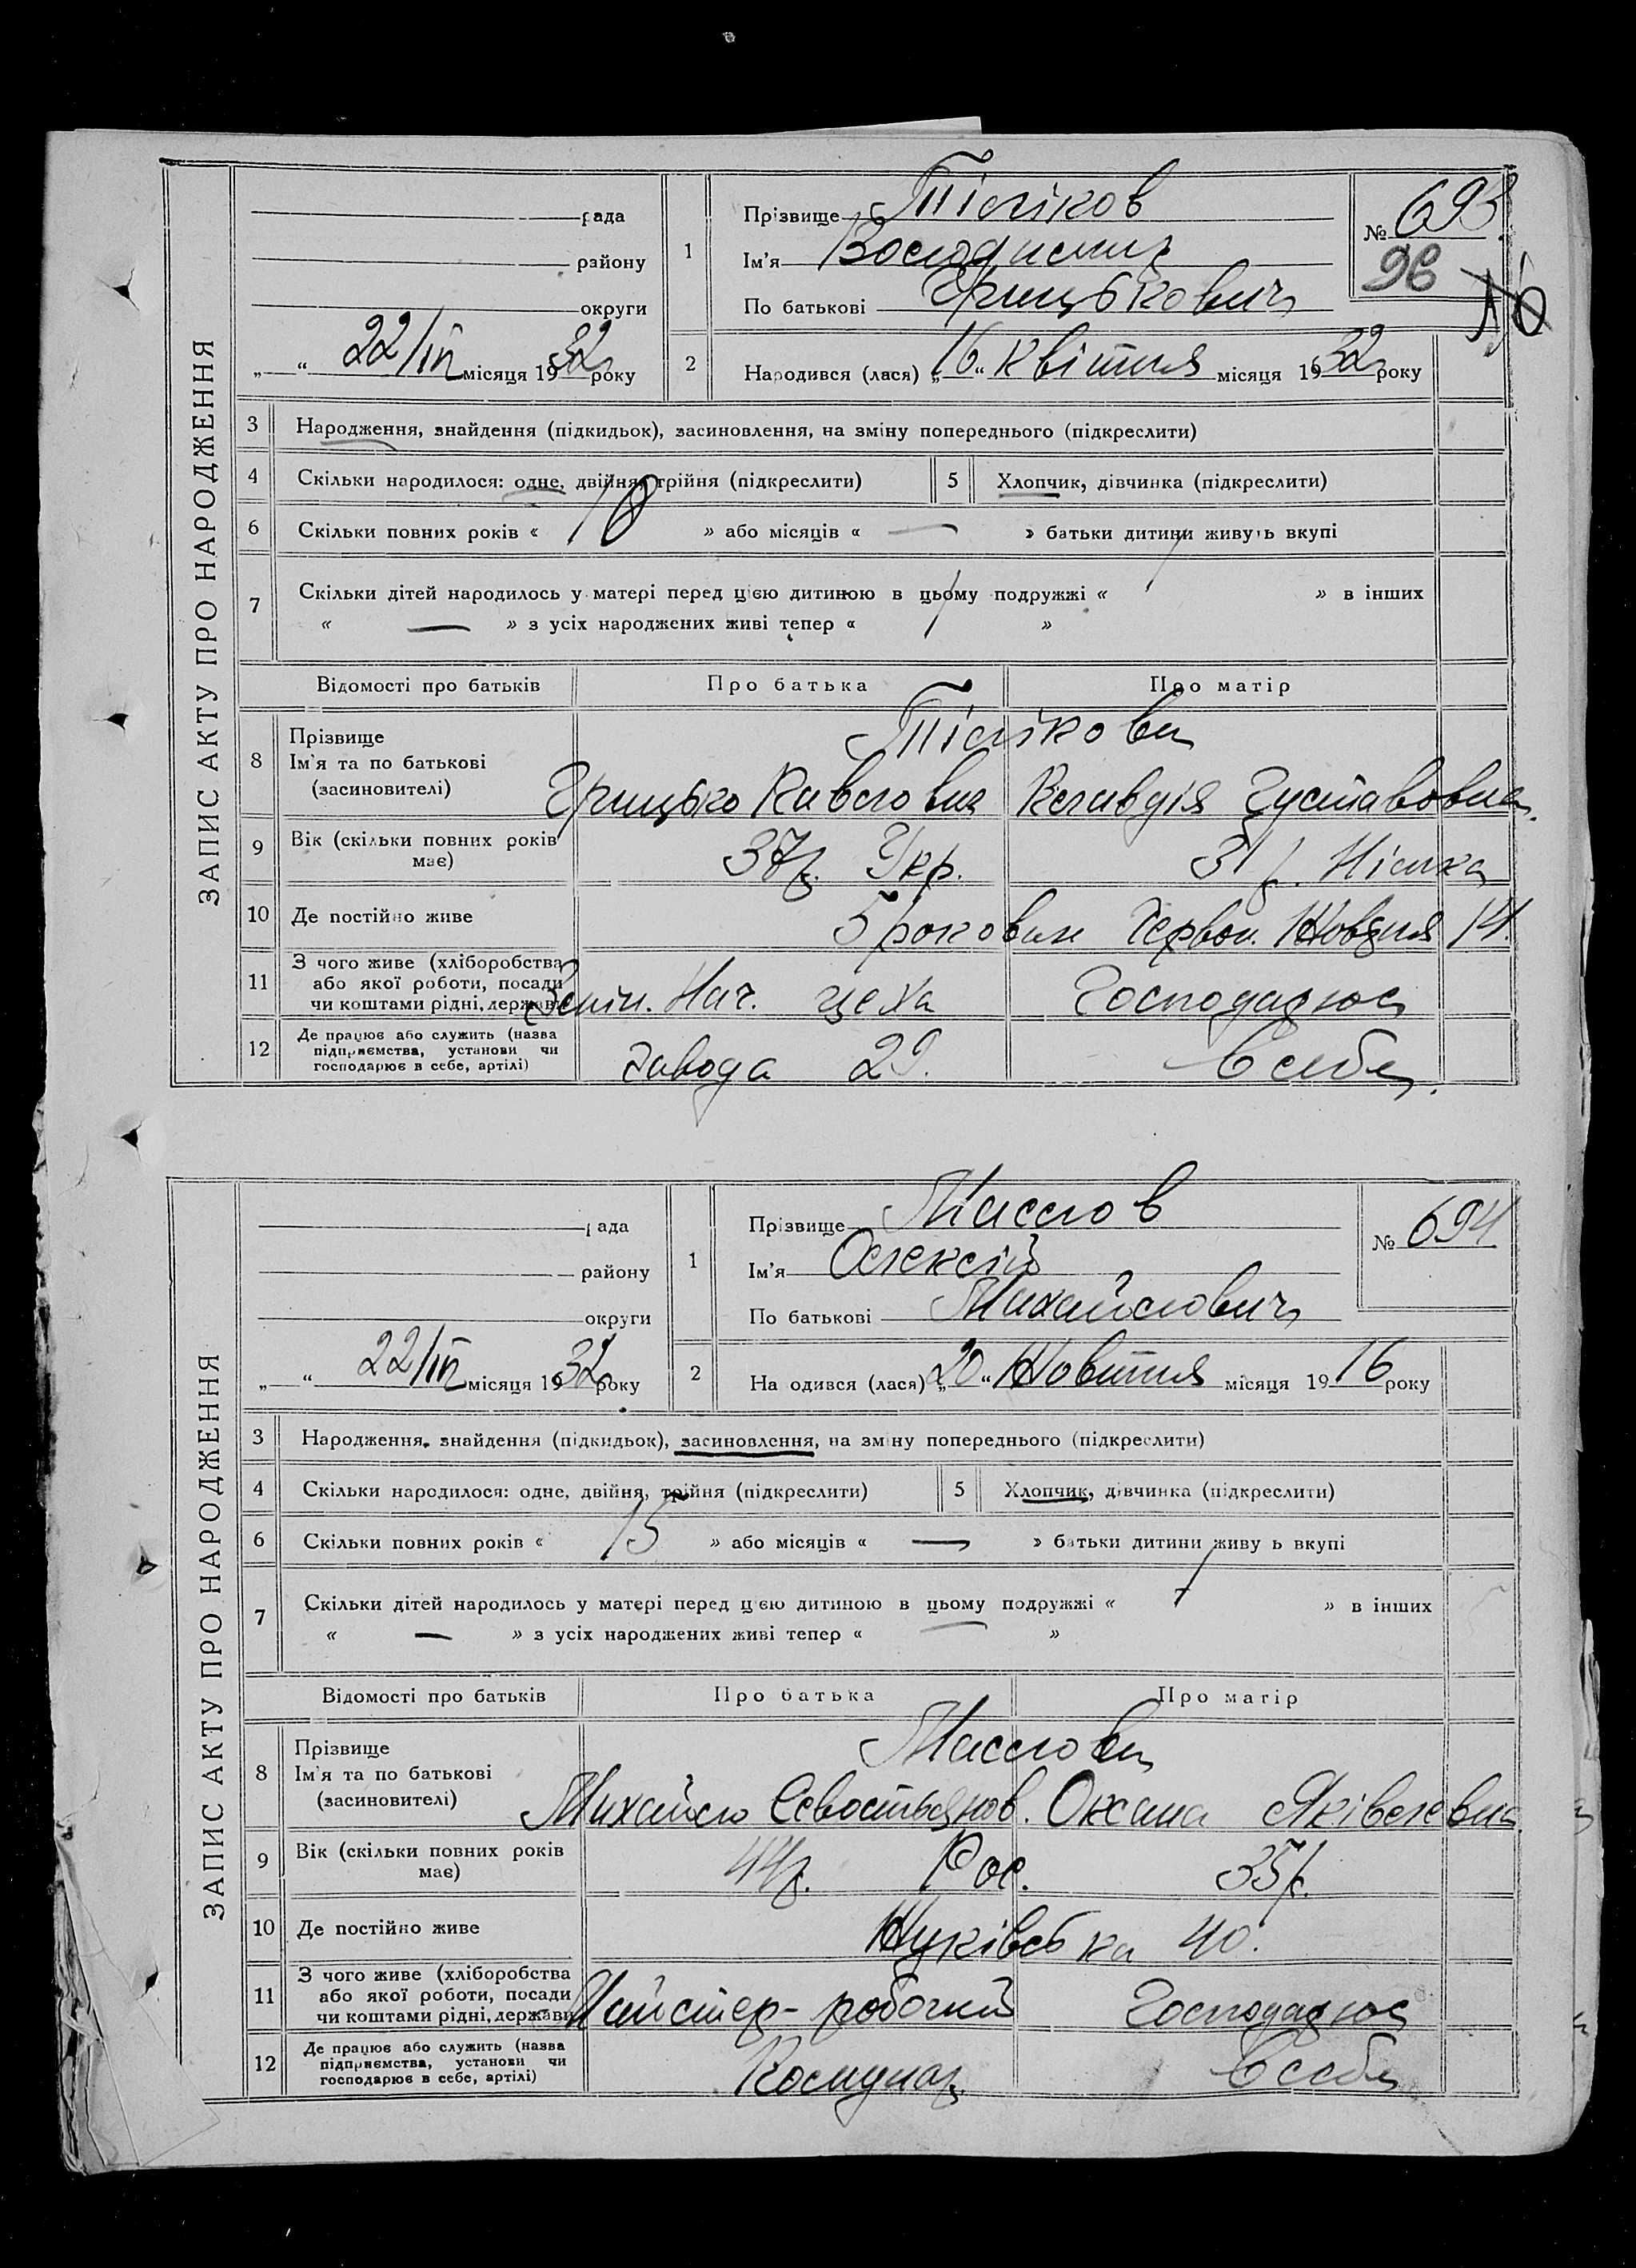 ЗАПИС АКТУ ПРО НАРОДЖЕННЯ
рада
району
округи
„ “ 22/IV місяця 1932 року
1
Прізвище Тіліков
Ім'я Володимир
По батькові Грицькович
№ 693
98
2
Народився (лася) „16“ Квітня місяця 1932 року
3 Народження, знайдення (підкидьок), засиновлення, на зміну попереднього (підкреслити)
4 Скільки народилося: одне, двійня, трійня (підкреслити)
5 Хлопчик, дівчинка (підкреслити)
6 Скільки повних років « 10 » або місяців « — » батьки дитини живуть вкупі
7 Скільки дітей народилось у матері перед цією дитиною в цьому подружжі « 1 » в інших
« — » з усіх народжених живі тепер « 1 »
Відомості про батьків Про батька Про матір
8 Прізвище
Ім'я та по батькові
(засиновителі)
Тілікови
Грицько Клавдія Густавовна
9 Вік (скільки повних років має)
37р. Укр. 31 р. Німка
10 Де постійно живе
5 роковин Червон. Жовтня 14.
11 З чого живе (хліборобства або якої роботи, посади чи коштами рідні, держави)
Нач. цеха Господарює
12 Де працює або служить (назва підприємства, установи чи господарює в себе, артілі)
завода 29. В себе
ЗАПИС АКТУ ПРО НАРОДЖЕННЯ
рада
району
округи
„ “ 22/IV місяця 1932 року
1
Прізвище Маслов
Ім'я Олексій
По батькові Михайлович
№ 694
2
На одився (лася) „20“ Жовтня місяця 1916 року
3 Народження, знайдення (підкидьок), засиновлення, на зміну попереднього (підкреслити)
4 Скільки народилося: одне, двійня, трійня (підкреслити)
5 Хлопчик, дівчинка (підкреслити)
6 Скільки повних років « 15 » або місяців « — » батьки дитини живу ь вкупі
7 Скільки дітей народилось у матері перед цією дитиною в цьому подружжі « » в інших
« — » з усіх народжених живі тепер « — »
Відомості про батьків Про батька Про матір
8 Прізвище
Ім'я та по батькові
(засиновителі)
Маслови
Михайло Севостьянов. Оксана Яківлевна
9 Вік (скільки повних років має)
44р. Рос. 35р.
10 Де постійно живе
Жуківська 40.
11 З чого живе (хліборобства або якої роботи, посади чи коштами рідні, держави)
Майстер-робочий Господарює
12 Де працює або служить (назва підприємства, установи чи господарює в себе, артілі)
Комунар В себе